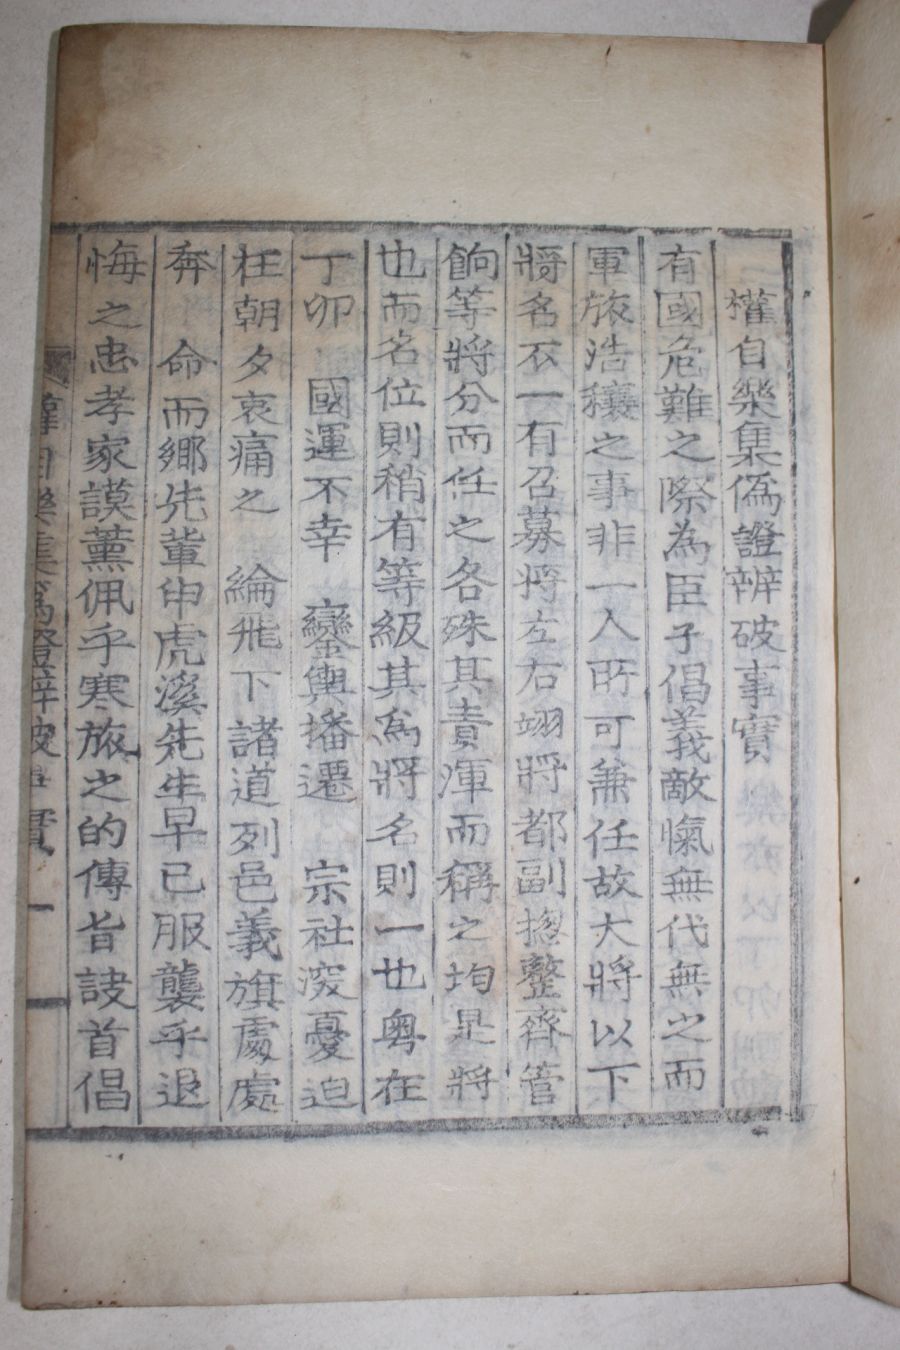 權自樂集僞證辨破事實
有國危難之際為臣子倡義敵愾無代無之而
軍旅浩穰之事非一人所可兼任故大將以下
將名不一有召募將左右翊將都副摠整齊管
餉等將分而任之各殊其責渾而稱之均是將
也而名位則稍有等級其為將名則一也粤在
丁卯　國運不幸　鑾輿播遷　宗社深憂迫
在朝夕哀痛之　綸飛下諸道列邑義旗處處
奔　命而鄉先輩申虎溪先生早已服襲乎退
悔之忠孝家謨薰佩乎寒旅之的傳旨訣首倡
權自樂集僞證辨破事實　一